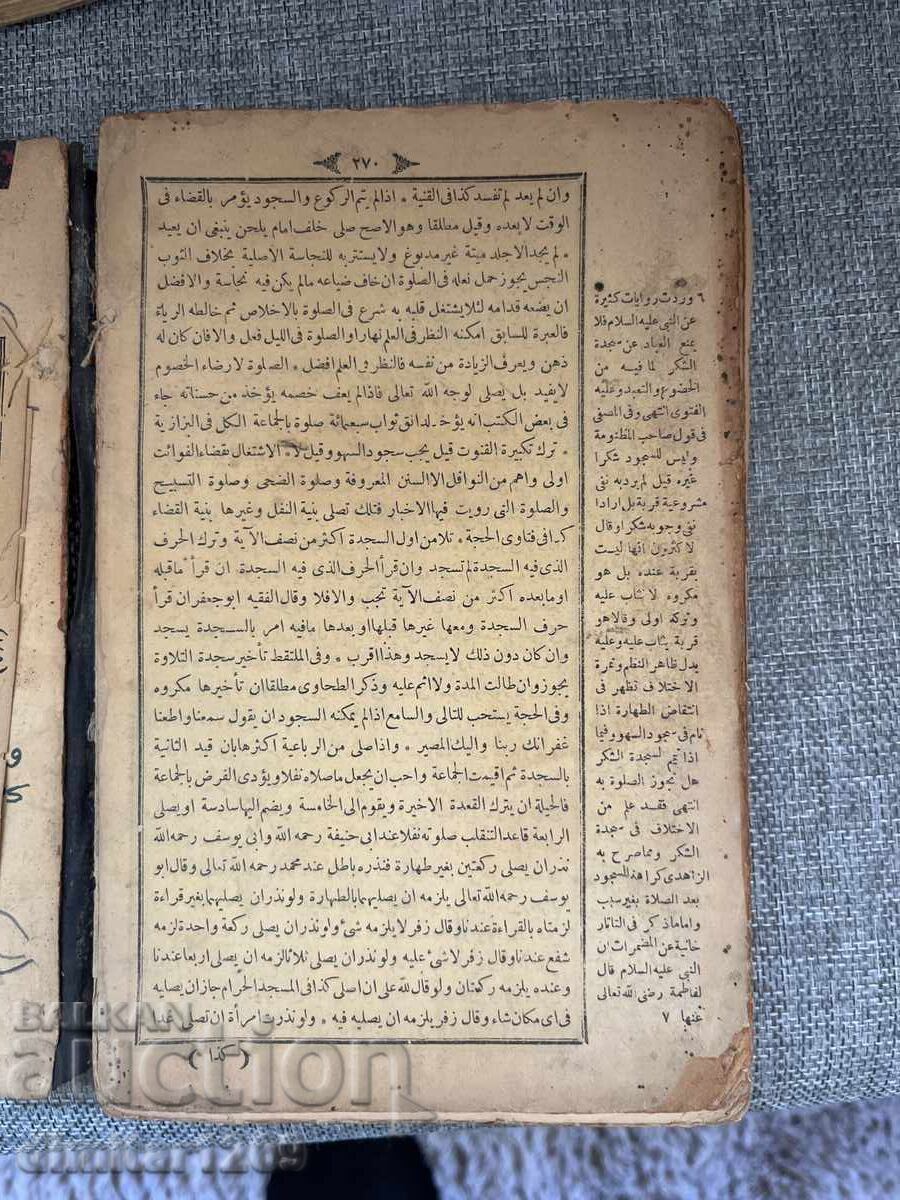 ٢٧٠
وان لم يعد لم تفسد كذا فى القنية * اذا لم يتم الركوع والسجود يؤمر بالقضاء فى
الوقت لا بعده وقيل مطلقا وهو الاصح صلى خلف امام يلحن ينبغى ان يعيد
* لم يجد الا جلد ميتة غير مدبوغ ولا يستتر به للنجاسة الاصلية بخلاف الثوب
النجس يجوز حمل نعله فى الصلوة ان خاف ضياعه مالم يكن فيه نجاسة والافضل
ان يضعه قدامه لئلا يشتغل قلبه به شرع فى الصلوة بالاخلاص ثم خالطه الرياء
فالعبرة للسابق امكنه النظر فى العلم نهارا والصلوة فى الليل فعل والا فان كان له
ذهن ويعرف الزيادة من نفسه فالنظر فى العلم افضل * الصلوة لارضاء الخصوم
لا يفيد بل يصلى لوجه الله تعالى فاذا لم يعف خصمه يؤخذ من حسناته جاء
فى بعض الكتب انه يؤخذ لدانق ثواب سبعمائة صلوة بالجماعة الكل فى البزازية
* ترك تكبيرة القنوت قيل يجب سجود السهو وقيل لا * الاشتغال بقضاء الفوائت
اولى واهم من النوافل الا السنن المعروفة وصلوة الضحى وصلوة التسبيح
والصلوة التى رويت فيها الاخبار فتلك تصلى بنية النفل وغيرها بنية القضاء
كذا فى فتاوى الحجة * تلا من اول السجدة اكثر من نصف الآية وترك الحرف
الذى فيه السجدة لم تسجد وان قرأ الحرف الذى فيه السجدة ان قرأ ماقبله
او ما بعده اكثر من نصف الآية تجب والا فلا وقال الفقيه ابو جعفر ان قرأ
حرف السجدة ومعها غيرها قبلها او بعدها مافيه امر بالسجدة يسجد
وان كان دون ذلك لا يسجد وهذا اقرب * وفى الملتقط تأخير سجدة التلاوة
يجوز وان طالت المدة ولا اثم عليه وذكر الطحاوى مطلقا ان تأخيرها مكروه
وفى الحجة يستحب للتالى والسامع اذا لم يمكنه السجود ان يقول سمعنا واطعنا
غفرانك ربنا واليك المصير * واذا صلى من الرباعية اكثرها بان قيد الثانية
بالسجدة ثم اقيمت الجماعة واحب ان يجعل ماصلاه نفلا ويؤدى الفرض بالجماعة
فالحيلة ان يترك القعدة الاخيرة ويقوم الى الخامسة ويضم اليها سادسة او يصلى
الرابعة قاعدا لتنقلب صلوته نفلا عند ابى حنيفة رحمه الله وابى يوسف رحمه الله
نذر ان يصلى ركعتين بغير طهارة فنذره باطل عند محمد رحمه الله تعالى وقال ابو
يوسف رحمه الله تعالى يلزمه ان يصليهما بالطهارة ولو نذر ان يصليهما بغير قراءة
لزمتاه بالقراءة عندنا وقال زفر لا يلزمه شئ ولو نذر ان يصلى ركعة واحدة لزمه
شفع عندنا وقال زفر لا شئ عليه ولو نذر ان يصلى ثلاثا لزمه ان يصلى اربعا عندنا
وعنده يلزمه ركعتان ولو قال لله على ان اصلى كذا فى المسجد الحرام جاز ان يصليه
فى اى مكان شاء وقال زفر يلزمه ان يصليه فيه * ولو نذرت امرأة ان تصلى غدا
( كذا )
٦ وردت روايات كثيرة
عن النبى عليه السلام فلا
يمنع العباد عن سجدة
الشكر لما فيه من
الخضوع والتعبد وعليه
الفتوى انتهى وفى المصفى
فى قول صاحب المنظومة
وليس للسجود شكرا
غيره قيل لم يرد به نفى
مشروعية قربة بل اراد
نفى وجوبه شكرا وقال
الاكثرون انها ليست
بقربة عنده بل هو
مكروه لا يثاب عليه
وتركه اولى وقالا هو
قربة يثاب عليه وعليه
يدل ظاهر النظم وثمرة
الاختلاف تظهر فى
انتقاض الطهارة اذا
نام فى سجود السهو وفيما
اذا تيمم لسجدة الشكر
هل تجوز الصلوة به
انتهى فقد علم من
الاختلاف فى سجدة
الشكر ومما صرح به
الزاهدى كراهة السجود
بعد الصلاة بغير سبب
واما ماذكر فى التاتار
خانية عن المضمرات ان
النبى عليه السلام قال
لفاطمة رضى الله تعالى
عنها ٧
BALKAN
auction
dimitar1269